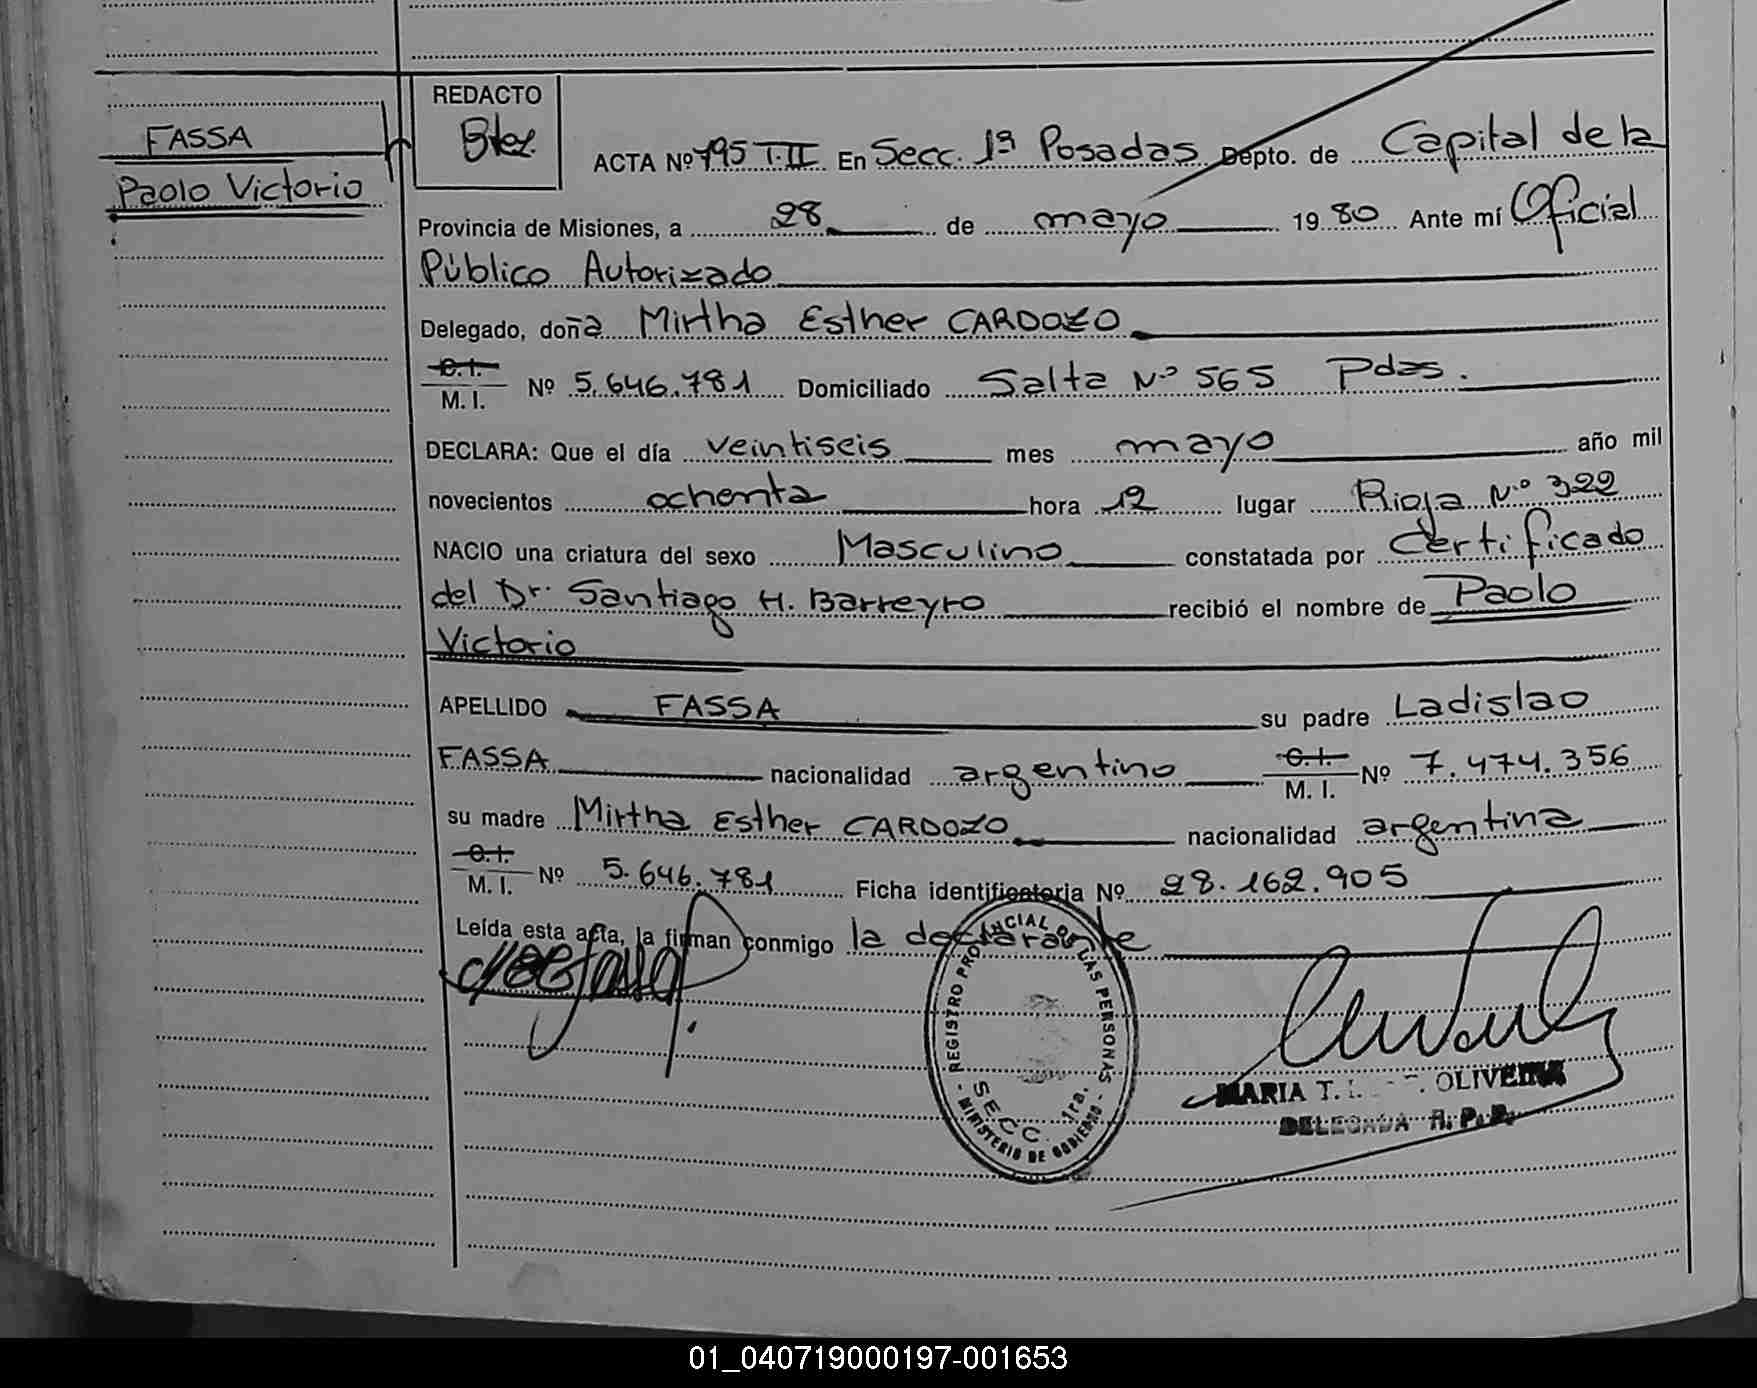 FASSA
Paolo Victorio
REDACTO
ACTA Nº 795 T.II En Secc. 1ª Posadas Depto. de Capital de la
Provincia de Misiones, a 28 de mayo 1980 Ante mí Oficial
Público Autorizado
Delegado, doña Mirtha Esther CARDOZO
C.I.
M. I. Nº 5.646.781 Domiciliado Salta Nº 565 Pdas.
DECLARA: Que el día veintiseis mes mayo año mil
novecientos ochenta hora 12 lugar Rioja Nº 322
NACIO una criatura del sexo Masculino constatada por Certificado
del Dr. Santiago H. Barreyro recibió el nombre de Paolo
Victorio
APELLIDO FASSA su padre Ladislao
FASSA nacionalidad argentino C.I. M. I. Nº 7.474.356
su madre Mirtha Esther CARDOZO nacionalidad argentina
C.I.
M. I. Nº 5.646.781 Ficha identificatoria Nº 28.162.905
Leída esta acta, la firman conmigo la declarante
REGISTRO PROVINCIAL DE LAS PERSONAS
SECC. 1ra.
MINISTERIO DE GOBIERNO
MARIA T. OLIVEIRA
DELEGADA R. P. P.
01_040719000197-001653